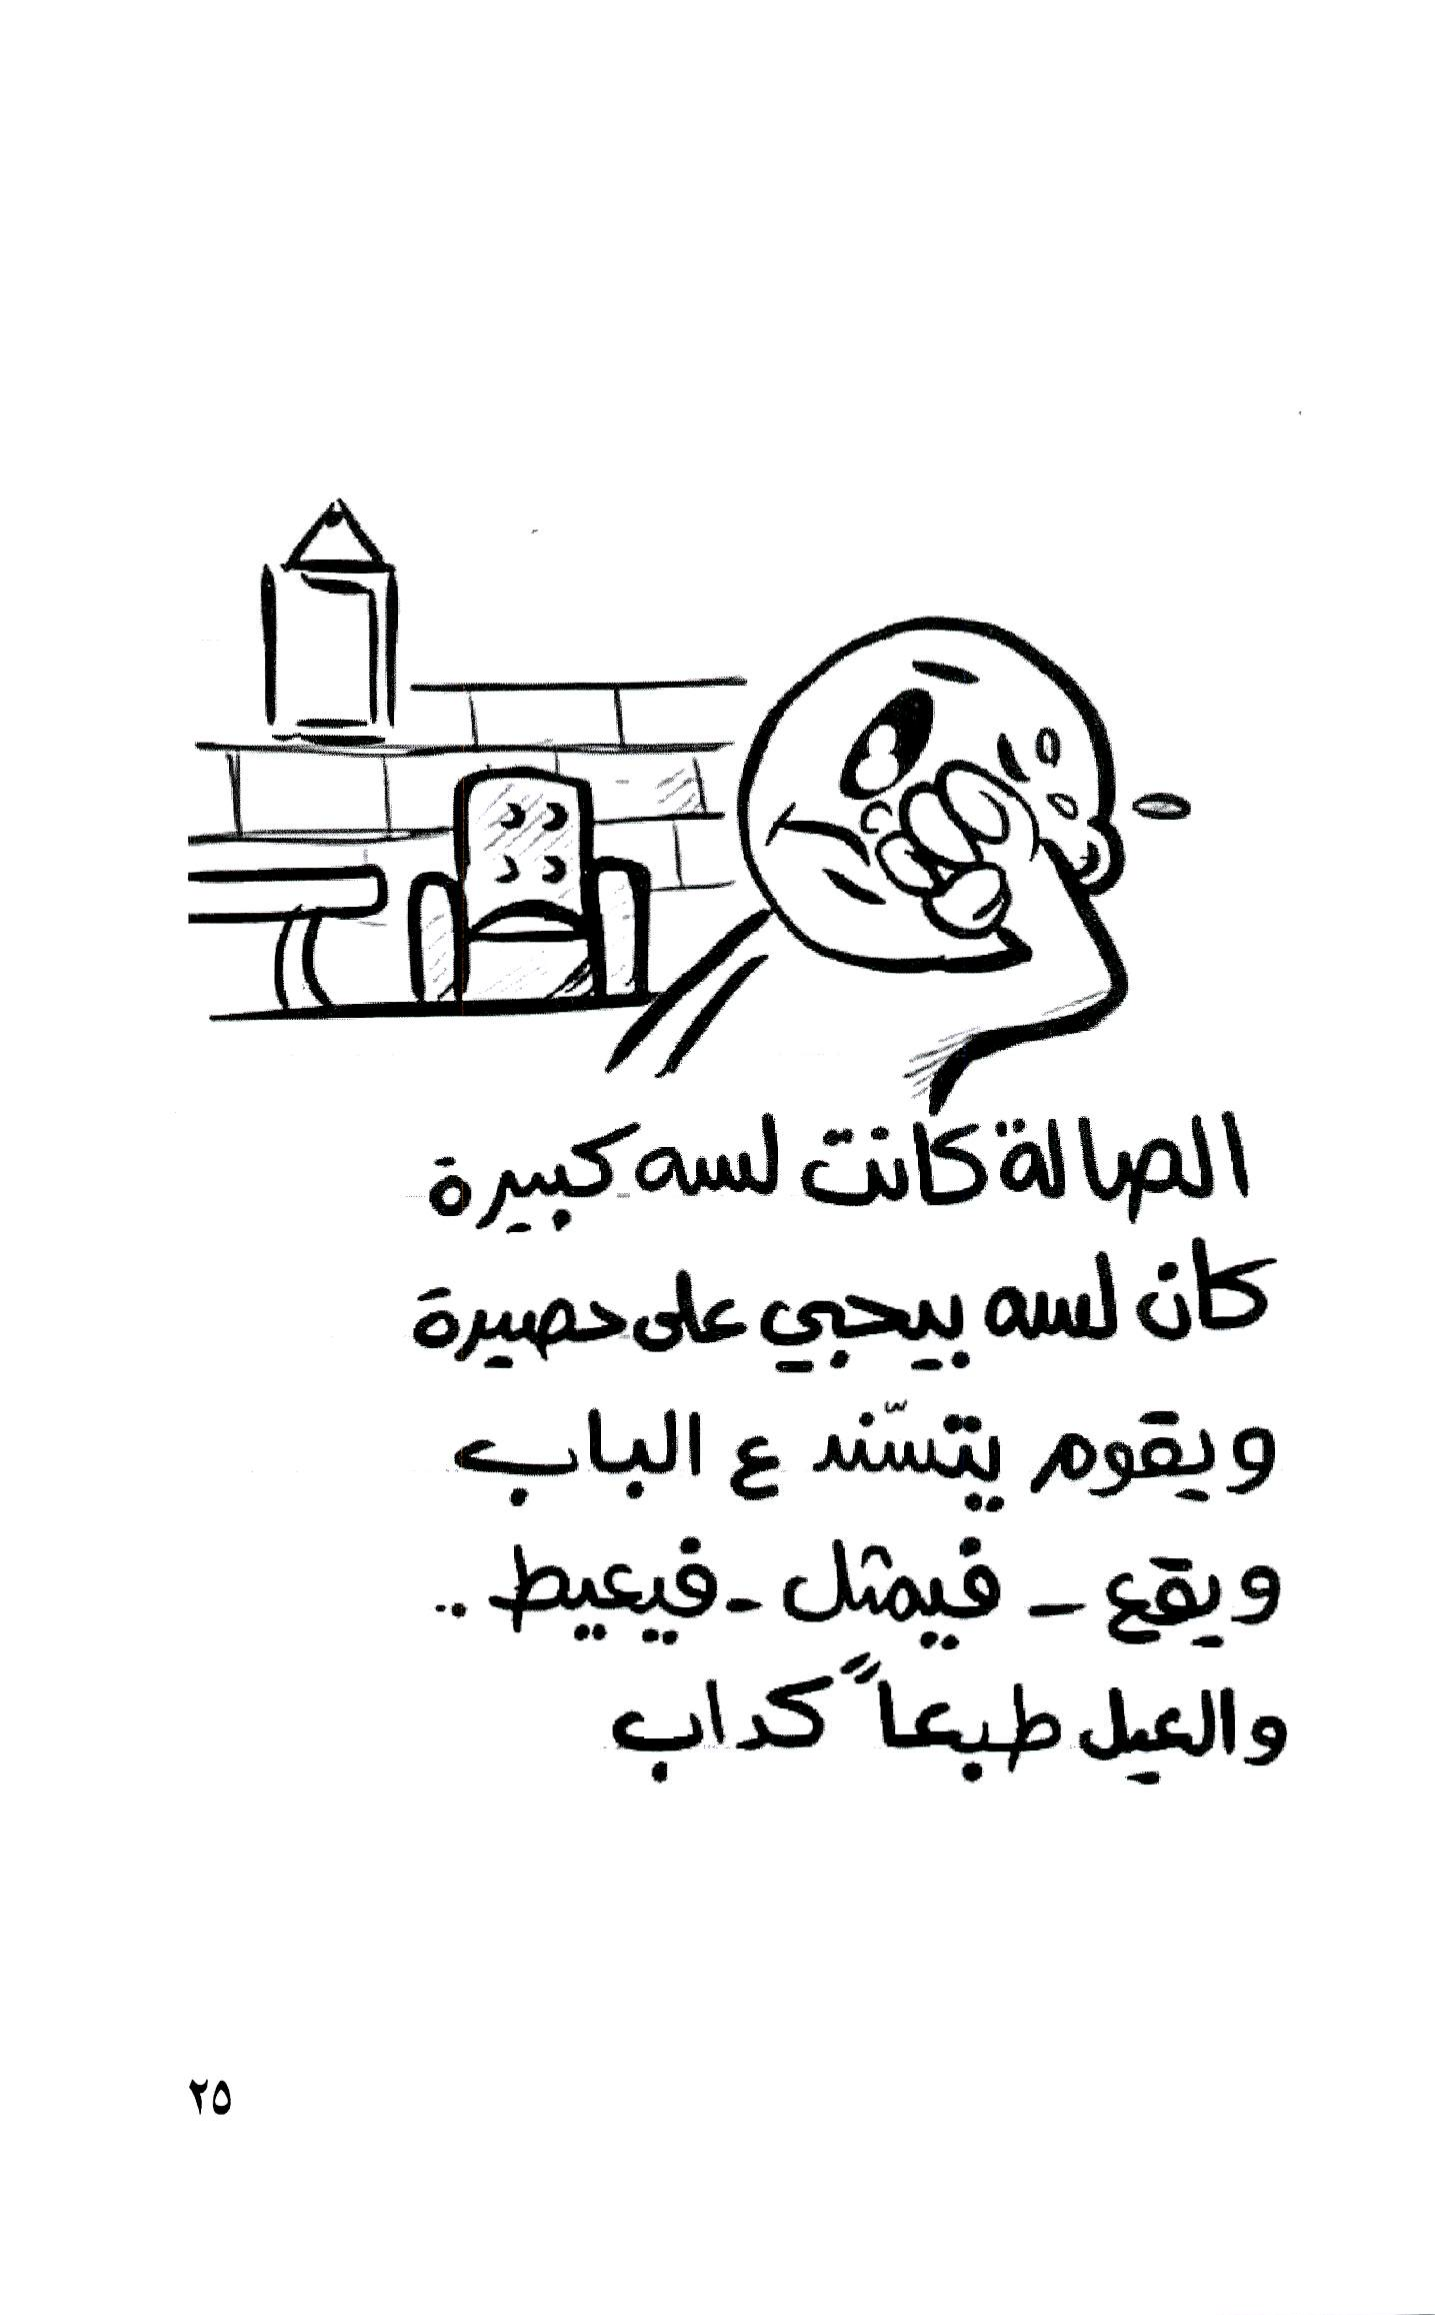 الصالة كانت لسه كبيرة
كان لسه بيحبي على حصيرة
ويقوم يتسّند ع الباب
ويقع - فيمثل - فيعيط ..
والعيل طبعاً كداب
٢٥